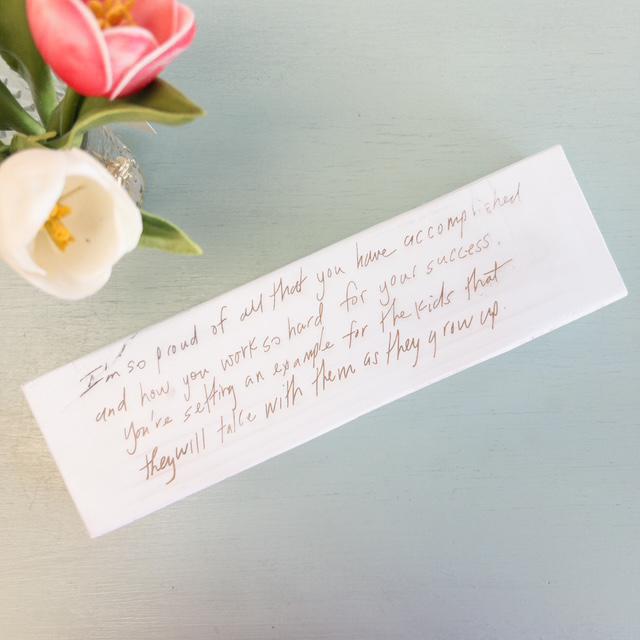 I'm so proud of all that you have accomplished
and how you work so hard for your success.
You're setting an example for the kids that
they will take with them as they grow up.